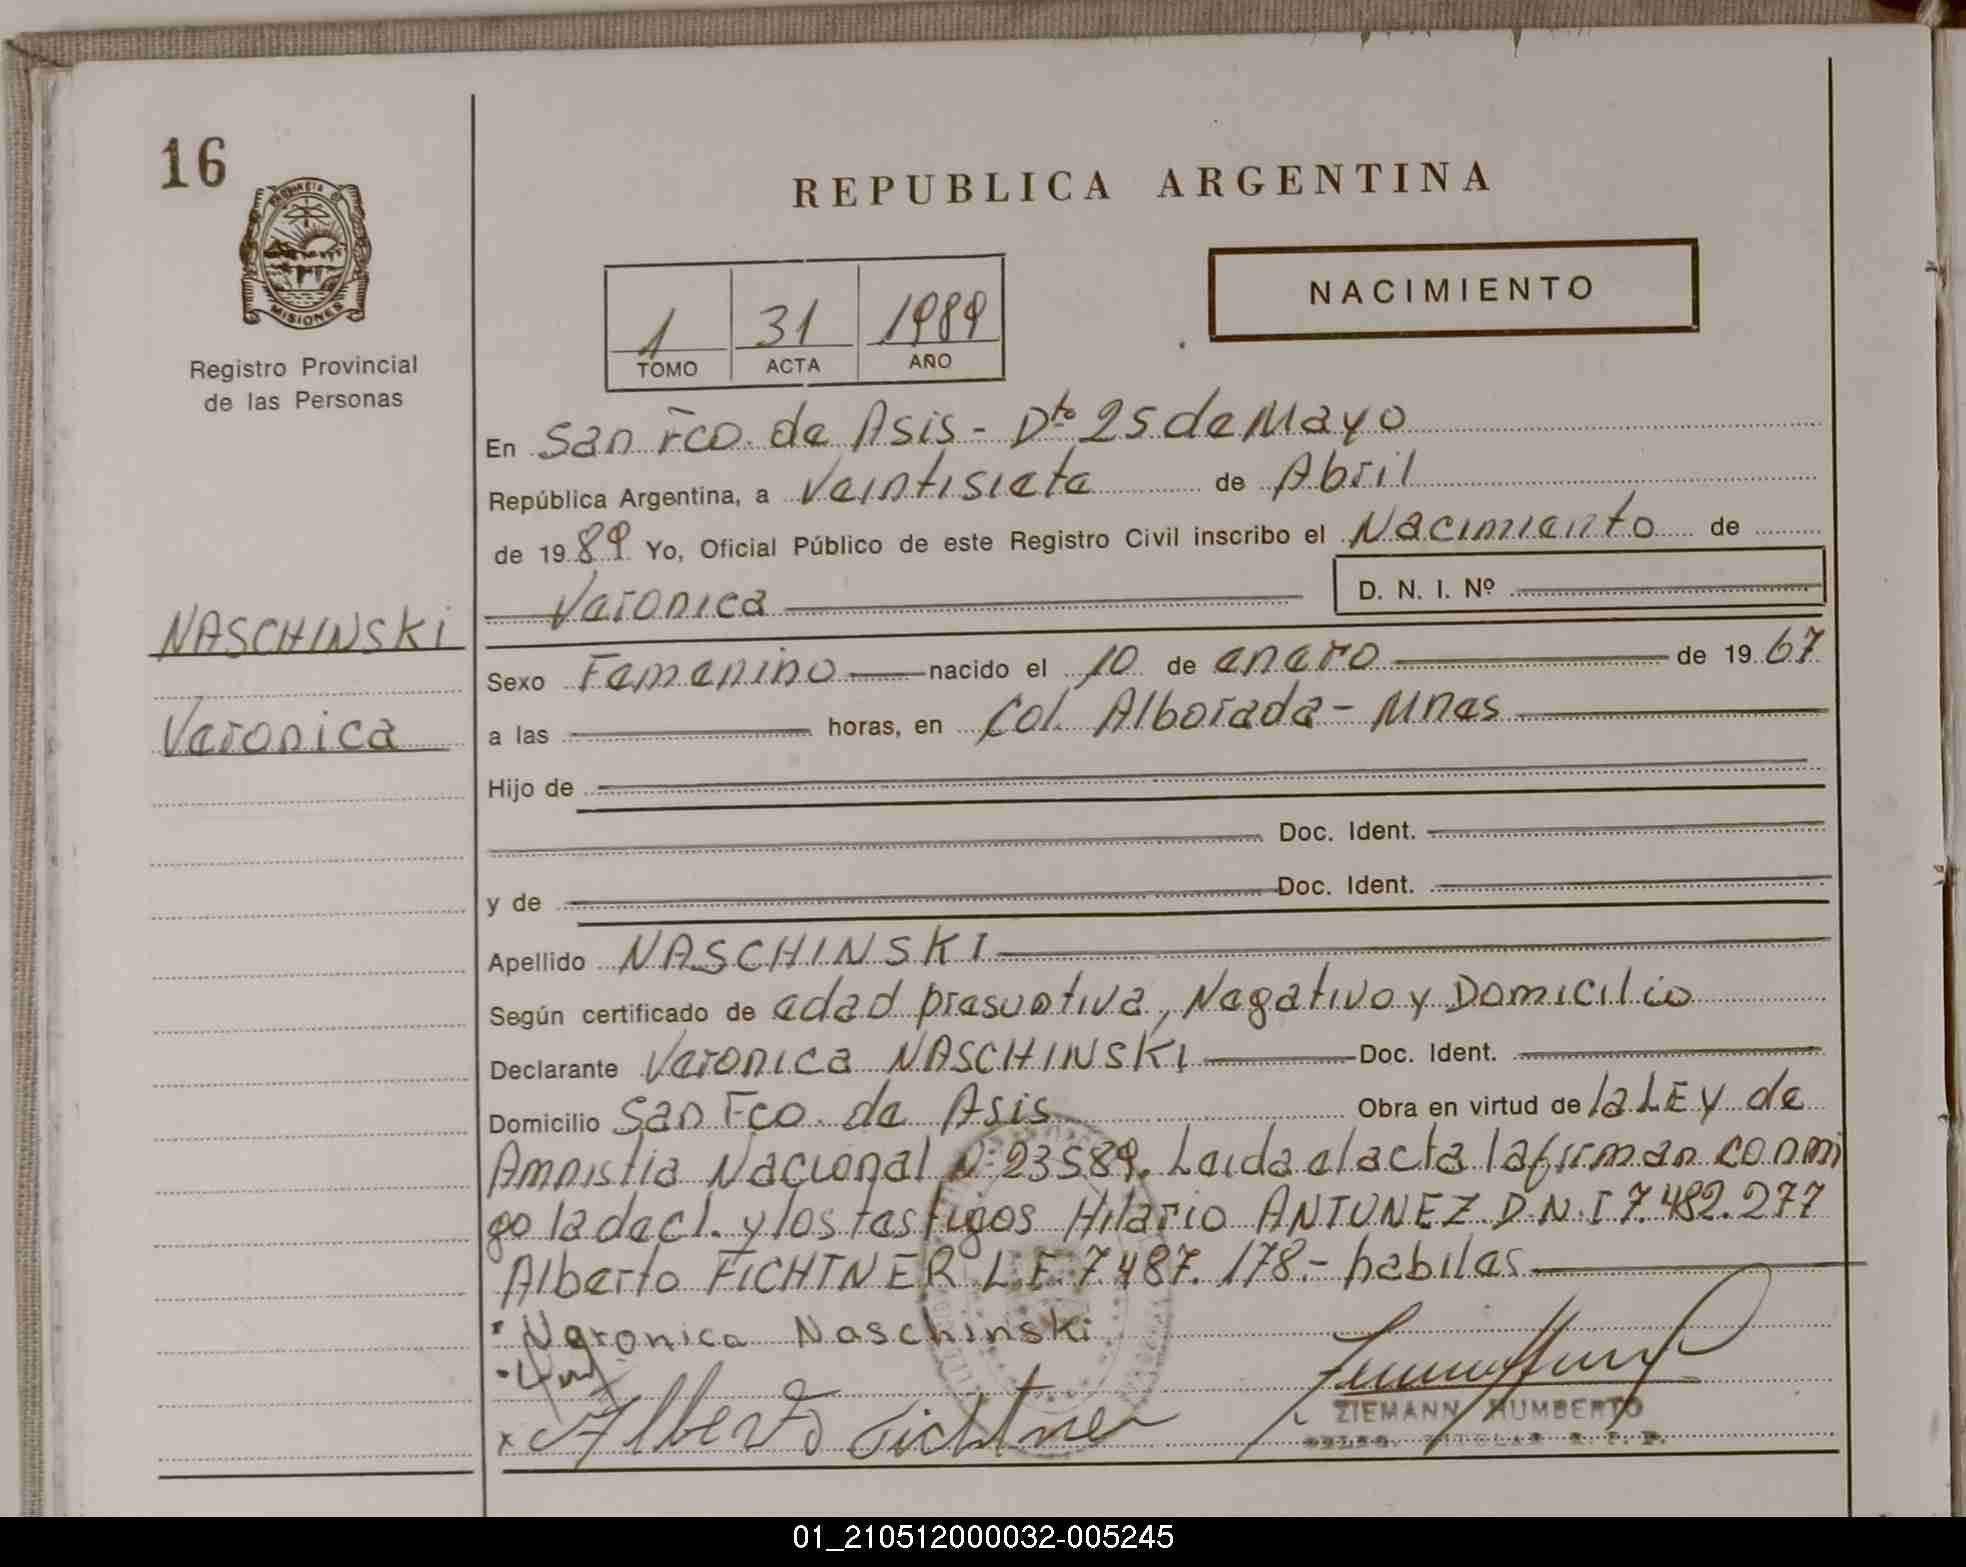 16
PROVINCIA DE
MISIONES
Registro Provincial
de las Personas
REPUBLICA ARGENTINA
NACIMIENTO
1 31 1989
TOMO ACTA AÑO
En San Fco. de Asis - Dto 25 de Mayo
República Argentina, a Veintisiete de Abril
de 1989 Yo, Oficial Público de este Registro Civil inscribo el Nacimiento de
Veronica D. N. I. Nº
NASCHINSKI
Veronica
Sexo Femenino nacido el 10 de enero de 1967
a las horas, en Col. Alborada - Mnes
Hijo de
Doc. Ident.
y de Doc. Ident.
Apellido NASCHINSKI
Según certificado de edad presuntiva, Negativo y Domicilio
Declarante Veronica NASCHINSKI Doc. Ident.
Domicilio San Fco. de Asis Obra en virtud de la LEY de
Amnistia Nacional Nº 23589. Leida el acta la firman conmi
go la decl. y los testigos Hilario ANTUNEZ D.N.I 7.482.277
Alberto FICHTNER L.E. 7.487.178.- habiles
Veronica Naschinski
x Alberto Fichtner
ZIEMANN HUMBERTO
01_210512000032-005245